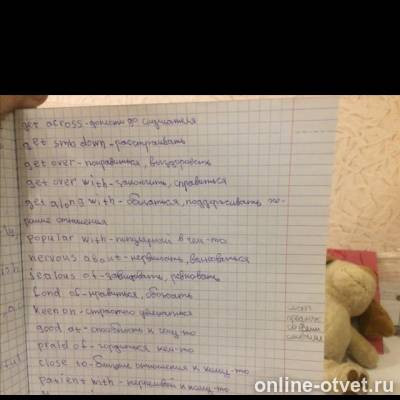 get across - донести до слушателя
get smb down - расстраивать
get over - поправиться, выздороветь
get over with - закончить, справиться
get along with - общаться, поддерживать хо-
рошие отношения
popular with - популярный в чем-то
nervous about - нервничать, волноваться
jealous of - завидовать, ревновать
fond of - нравиться, обожать
keen on - страстно увлекаться
good at - способность к чему-то
praid of - гордиться кем-то
close to - близкие отношения к кому-то
patient with - терпеливый к кому-то
online-otvet.ru